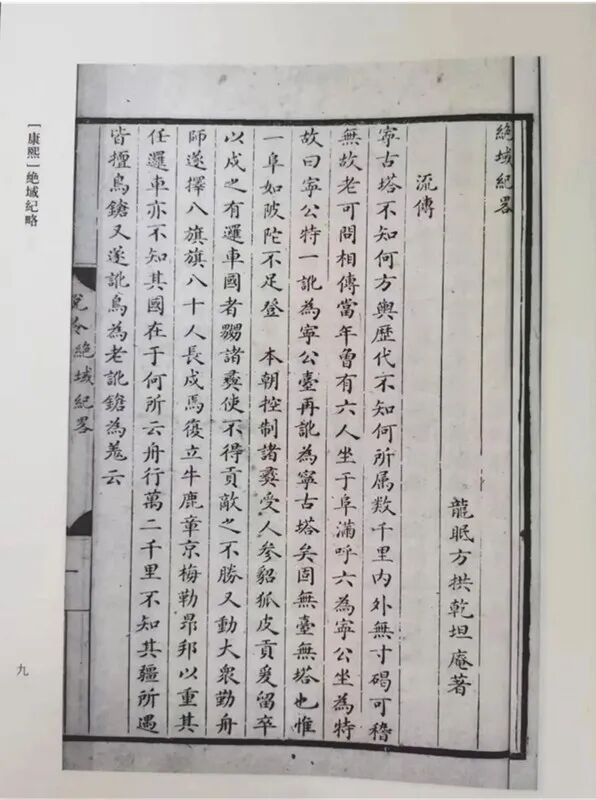 絕域紀畧
龍眠方拱乾坦庵著
流傳
寧古塔不知何方輿歷代不知何所属数千里內外無寸碣可稽
無故老可問相傳當年曾有六人坐于阜滿呼六為寧公坐為特
故曰寧公特一訛為寧公臺再訛為寧古塔矣固無臺無塔也惟
一阜如陂陀不足登　本朝控制諸彝受人參貂狐皮貢爰留卒
以戍之有邏車國者嬲諸彝使不得貢敵之不勝又動大衆勤舟
師遂擇八旗旗八十人長戍焉復立牛鹿章京梅勒昂邦以重其
任邏車亦不知其國在于何所云舟行萬二千里不知其疆所遇
皆擅鳥鎗又遂訛鳥為老訛鎗為羗云
說令絕域紀畧
一
［康熙］絕域紀略
九